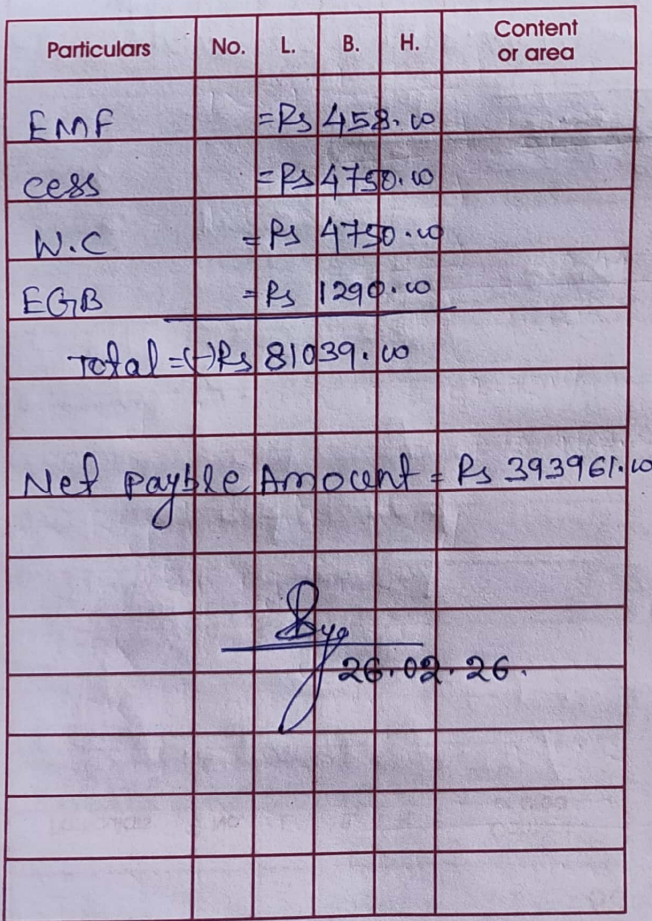 Particulars No. L. B. H. Content or area
EMF = Rs 458.00
cess = Rs 4750.00
W.C = Rs 4750.00
EGB = Rs 1290.00
Total = (-) Rs 81039.00
Net payble Amount = Rs 393961.00
26.02.26.